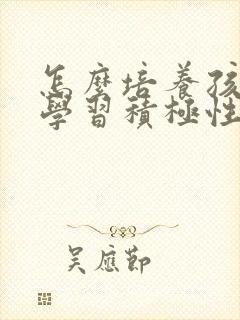 怎麼培養孩
學習積極性
吳應節